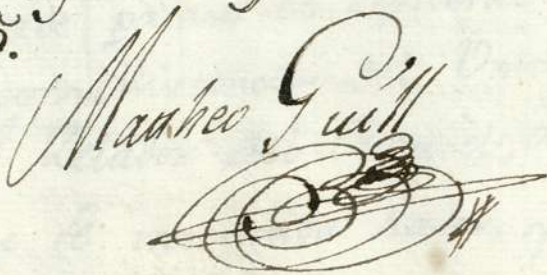 Mattheo Guill